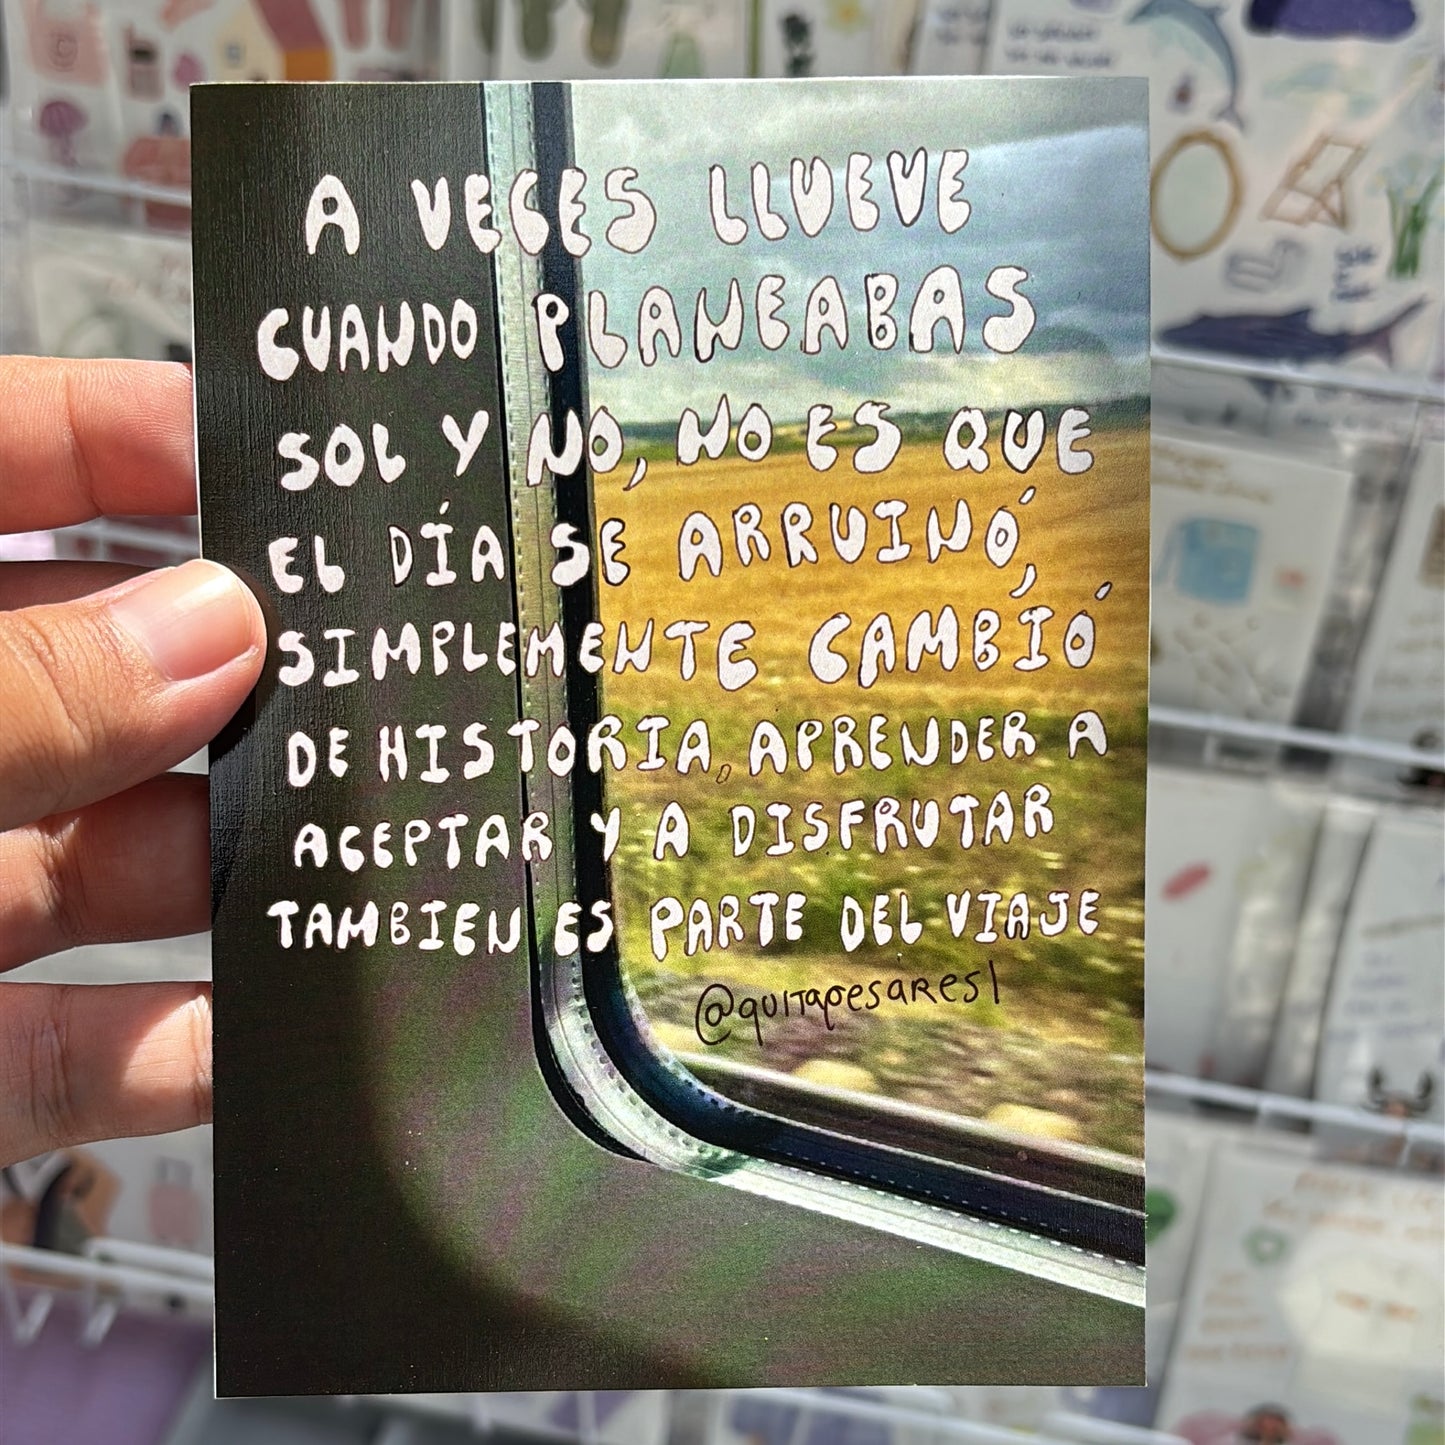 A VECES LLUEVE
CUANDO PLANEABAS
SOL Y NO, NO ES QUE
EL DÍA SE ARRUINÓ,
SIMPLEMENTE CAMBIÓ
DE HISTORIA, APRENDER A
ACEPTAR Y A DISFRUTAR
TAMBIEN ES PARTE DEL VIAJE
@quitapesares1